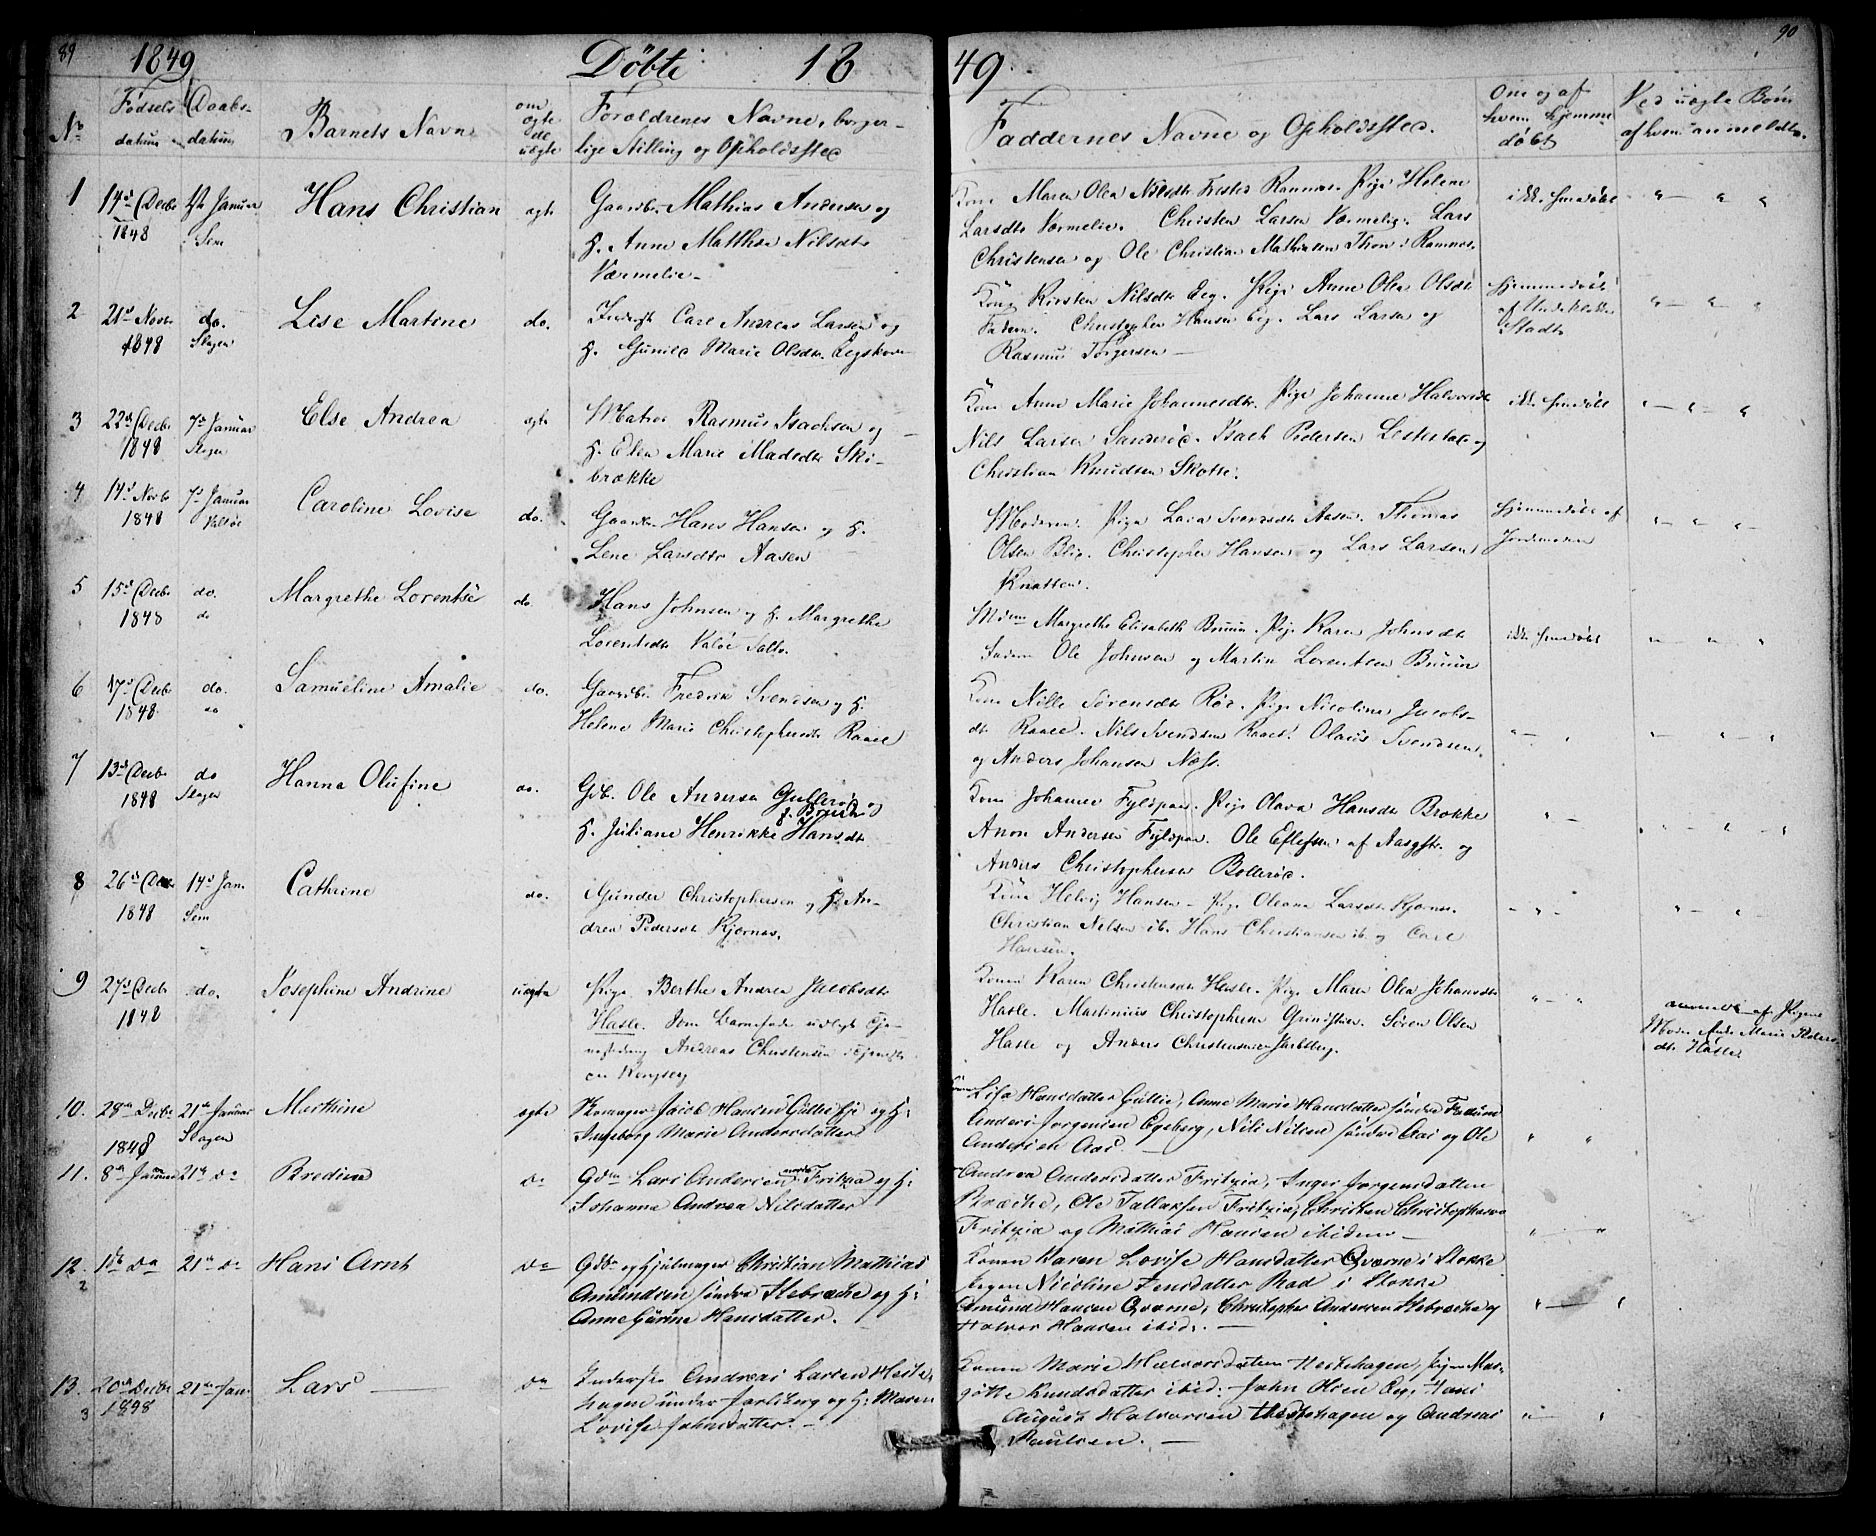 89
1849 Döbte 1849. 90
No
Födsels datum
Daabs- datum
Barnets Navn
om ægte el. uægte
Forældrenes Navne, borger-
lige Stilling og Opholdssted
Faddernes Navne og Opholdssted.
Om og af
hvem hjemme
döbt
Ved uægte Börn
af hvem anmeldt.
1 14de Decbr 1848 Januar Sem
Hans Christian
ægte
Gaardbr. Mathias Andersen og
H. Anne Mathea Nilsdtr
Værmelie
Kone Maren Olea Nilsdtr Ramnæs. Pige Helene
Larsdtr Værmelie. Christen Larsen Værmelie. Lars
Christensen og Ole Christian Mathiesen Thon i Ramnæs.
ikke hmdöbt
2 21de Novbr 1848 do. Slagen
Lise Martine
do.
Carl Andreas Larsen og
H. Gunild Marie Olsdtr. Eegskoven
Kone Kirsten Nilsdtr Eeg. Pige Anne Olea Olsdtr
Faderen. Christopher Hansen Eeg. Lars Larsen og
Rasmus Torgersen
hjemmedöbt
af Underklokker
Stadt
3 22de Decbr 1848 7de Januar Slagen
Else Andrea
ægte
Matros Rasmus Isachsen og
H. Elen Marie Madsdtr Ski-
brække
Kone Anne Marie Johannesdtr. Pige Johanne Halvorsdtr
Nils Larsen Sanderöd. Isach Pedersen og
Christian Knudsen Skotte.
ikke hmdöbt
4 14de Novbr 1848 7de Januar Valöe
Caroline Lovise
do.
Gaardbr. Hans Hansen og H.
Lene Larsdtr Aasen
Moderen. Pige Lava Svendsdtr Aasen. Thomas
Olsen Blix. Christopher Hansen og Lars Larsen
Knatten.
hjemmedöbt af
Jordemoren
5 15de Decbr 1848 do. do
Margrethe Lorentse
do.
Hans Johnsen og H. Margrethe
Lorentsdtr Valöe Saltv.
Margrethe Elisabeth Bruun. Pige Karen Johnsdtr
Faderen Ole Johnsen og Martin Lorentsen Bruun
ikke hmdöbt
6 17de Decbr 1848. do. do
Samueline Amalie
do.
Gaardbr. Fredrik Svendsen og H.
Helene Marie Christophersdtr Raael
Kone Nille Sörensdtr Röd. Pige Nicoline Jacobs-
dtr Raael. Nils Svendsen Raael. Olaus Svendsen
og Anders Johansen Næss.
7 13de Decbr 1848 do Slagen
Hanna Olufine
do.
Gdb. Ole Andersen Gulleröd og
H. Juliane Henrikke Hansdtr
Kone Johanne Fyldpaa. Pige Olava Hansdtr Brække
Aron Andersen Fyldpaa. Ole Ellefsen af Aasgstr. og
Anders Christophersen Bolleröd.
8 26de Decbr 1848 14de Jan. Sem
Cathrine
do.
Gunder Christophersen og H. An-
drea Pedersdtr Kjærnes.
Kone Helvig Hansen. Pige Oleana Larsdtr Kjærnes.
Christian Nilsen ib. Hans Christiansen ib. og Carl
Hansen.
9 27de Decbr 1848 do.
Josephine Andrine
uægte
Pige Berthe Andrea Jacobsdtr
Hasle. Som Barnefader udlagt
Andreas Christensen
Kongsberg
Kone Karen Christensdtr Hasle. Pige Maren Olea Johansdtr
Hasle. Martinius Christophersen Grindstuen. Sören Olsen
Hasle og Anders Christensen Jarlsberg.
anmeldt af Pigens
Moder Ane Marie Peders-
dtr Hasle
10. 28de Decbr 1848 21de Januar Slagen
Mathine
ægte
Jacob Hansen Gullie Eje og H:
Ingeborg Marie Andersdatter
Lisa Hansdatter Gullie, Anne Marie Hansdatter söndre
Anders Jörgensen Egeberg, Nils Nilsen söndre Aas og Ole
Andersen Aas.
11. 8de Januar 21de do
Bredine
do
Gdm Lars Andersen nordre Fritzöa og H:
Johanne Andrea Nilsdatter
Andrea Andersdatter Fritzöa, Inger Jörgensdatter
Bræche, Ole Tallaksen Fritzöa, Christen Christophersen
Fritzöa og Mathias Hansen ibidem
12. 2 1ste do 21de do
Hans Arnt
do
Gdbr og Hjulmager Christian Mathias
Amundsen söndre Stebræche og H:
Anne Gurine Hansdatter.
Konen Karen Lovise Hansdatter Qværne i Stokke
pigen Nicoline Jensdatter Rad i Stokke
Amund Hansen Qværne, Christopher Andersen Stebræche og
Halvor Hansen ibid.
13. 3 20de Decbr 1848 21de Jan.
Lars
do
Inderste Andreas Larsen Heste-
hagen under Jarlsberg og H: Maren
Lovise Johnsdatter.
Konen Marie Halvorsdatter Hestehagen, pigen Mar-
gitte Knudsdatter ibid: John Olsen Eeg, Hans
August Halvorsen Hestehagen og Andreas
Paulsen.